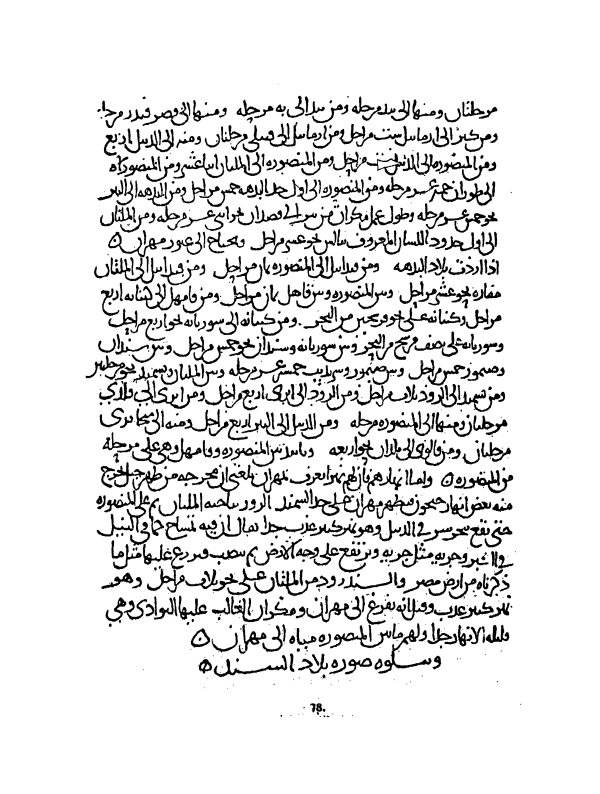 مرحلتان ومنها الى بند مرحله ومن بند الى به مرحله ومنها الى قصر قند مرحله
ومن كيز الى ارمابيل ست مراحل ومن ارمابيل الى قنبلى مرحلتان ومنه الى الدبيل اربع
ومن المنصوره الى الدبيل ست مراحل ومن المنصوره الى الملتان اثنا عشر ومن المنصوره
الى طوران خمس عشره مرحله ومن المنصوره الى اول حد البدهه خمس مراحل ومن البدهه الى التيز
نحو خمس عشره مرحله وطول عمل مكران من التيز الى قصدان نحو اثنى عشره مرحله ومن الملتان
الى اول حدود المعروف نحو عشر مراحل وتحتاج الى عبور مهران ۝
اذا اردت بلاد البدهه ومن قندابيل الى المنصوره ثمان مراحل ومن قندابيل الى الملتان
مفازه نحو عشر مراحل وبين المنصوره وبين قامهل ثمان مراحل ومن قامهل الى كنبايه اربع
مراحل وكنبايه على نحو فرسخين من البحر ومن كنبايه الى سوربايه نحو اربع مراحل
وسوربايه على نصف فرسخ من البحر وبين سوربايه وسندان نحو خمس مراحل وبين سندان
وصيمور خمس مراحل وبين صيمور وسرنديب خمس عشره مرحله وبين الملتان وبسمد نحو مرحلتين
ومن بسمد الى الرور ثلاث مراحل ومن الرور الى انرى اربع مراحل ومن انرى الى قلرى
مرحلتان ومنها الى المنصوره مرحله ومن الدبيل الى البيرون اربع مراحل ومنه الى منجابرى
مرحلتان ومن قالرى الى بلدان نحو اربعه وبانيه بين المنصوره وقامهل وهى على مرحله
من المنصوره ۝ واما انهارهم فان لهم نهرا يعرف بمهران بلغنى ان مخرجه من ظهر جبل يخرج
منه بعض انهار جيحون ويظهر مهران على حد بسمد الرور بناحيه الملتان ثم على المنصوره
حتى يقع فى البحر شرقى الدبيل وهو نهر كبير عذب جدا يقال ان فيه تماسيح كما فى النيل
وجريه مثل جريه ويرتفع على وجه الارض ثم ينضب فيزرع عليها مثل ما
ذكرناه من ارض مصر والسندرود من الملتان على نحو ثلاث مراحل وهو
نهر كبير عذب وقيل انه يفرغ الى مهران ومكران الغالب عليها البوادى وهى
قليله الانهار جدا ولهم ما بين المنصوره مياه الى مهران ۝
وتتلوه صوره بلاد السند ۝
78.